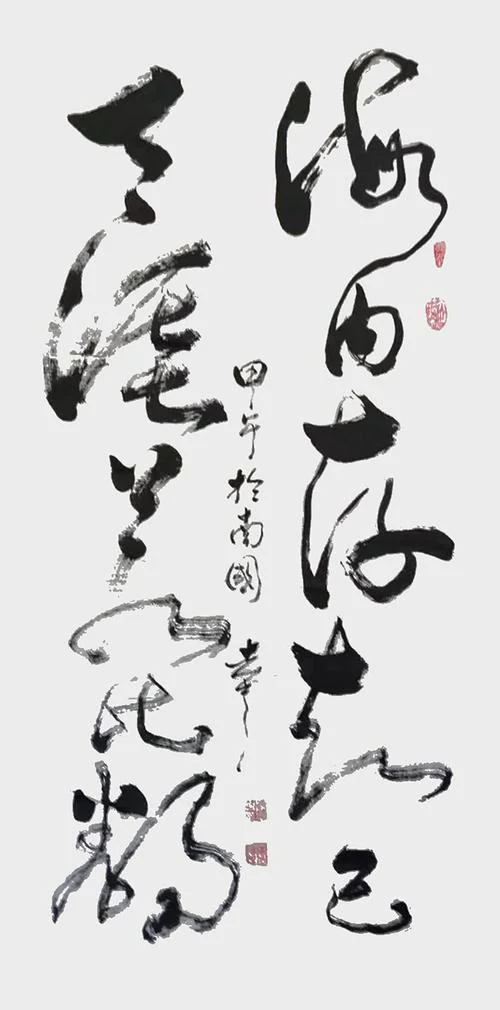 海内存知己
天涯若比鄰
甲午於南國